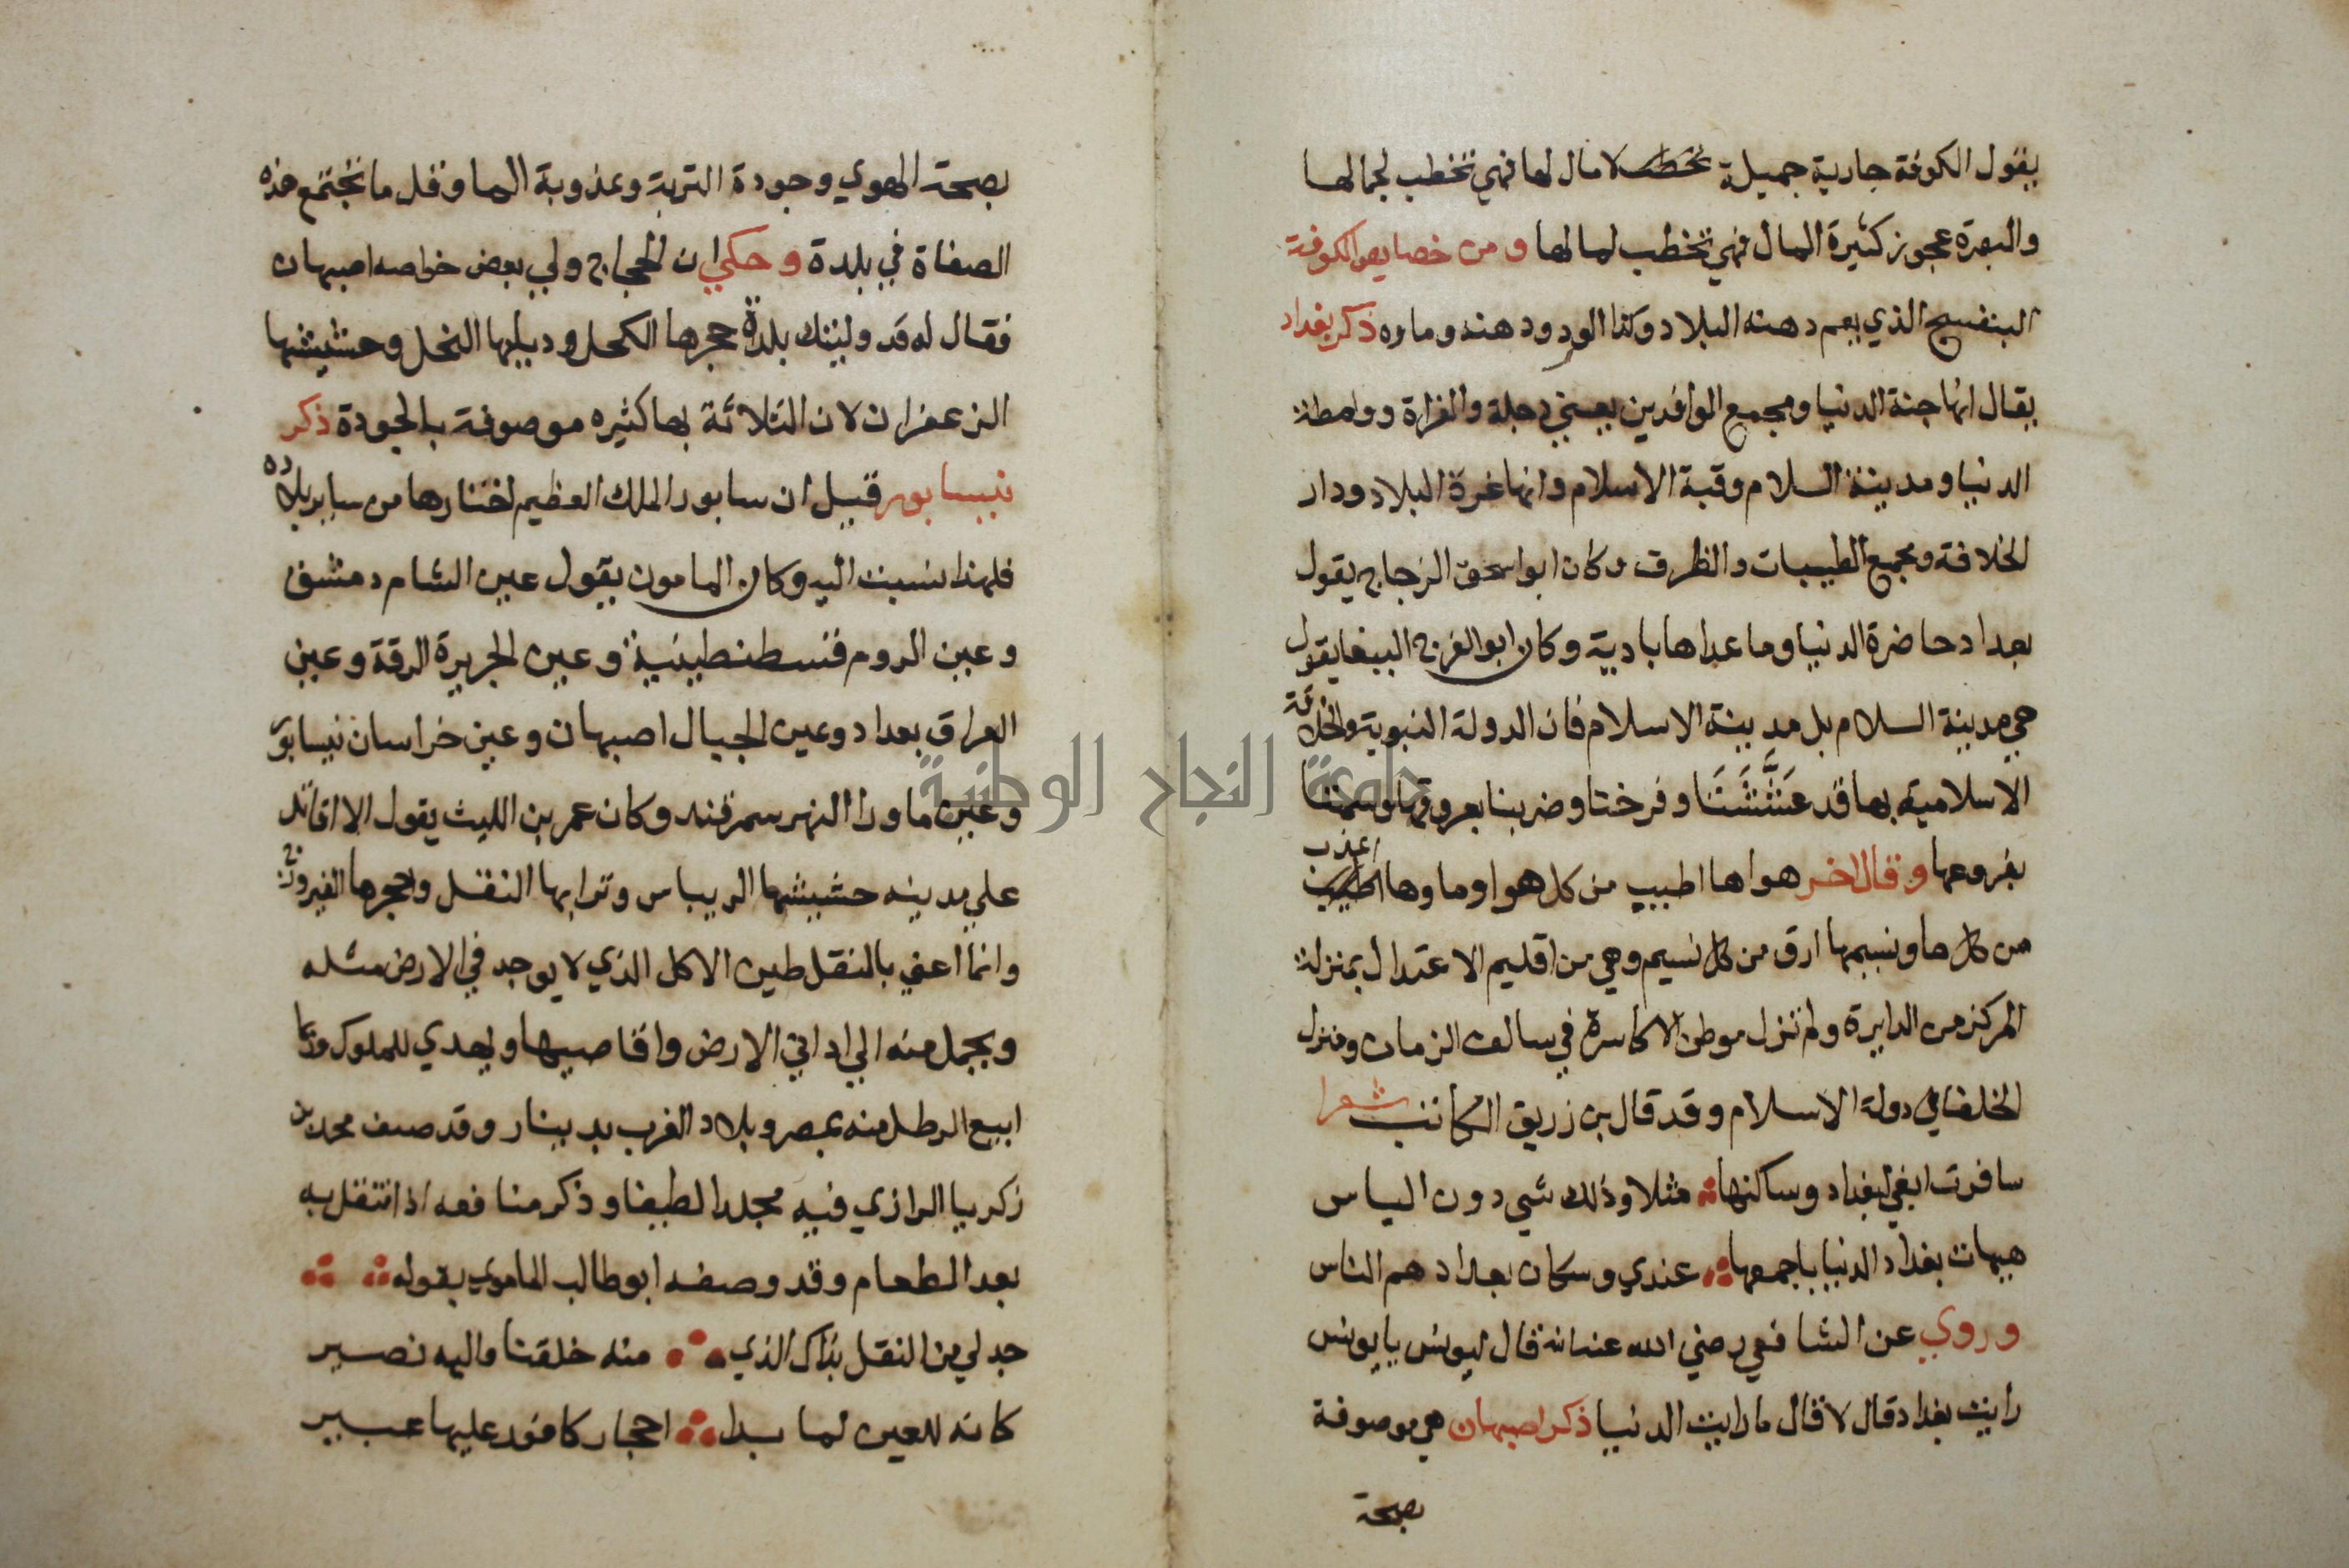 يقول الكوفة جارية جميلة تخطب لا مال لها فهي تخطب لجمالها
والبصرة عجوز كثيرة المال فهي تخطب لمالها ومن خصايص الكوفة
البنفسج الذي يعم دهنه البلاد وكذا الورد ودهنه وماوه ذكر بغداد
يقال انها جنة الدنيا ومجمع الوافدين يعني دجلة والفراة وواسطة
الدنيا ومدينة السلام وقبة الاسلام وانها غرة البلاد ودار
الخلافة ومجمع الطيبات والظرف وكان ابو اسحق الزجاج يقول
بغداد حاضرة الدنيا وما عداها بادية وكان ابو الفرج الببغا يقول
هي مدينة السلام بل مدينة الاسلام فان الدولة النبوية والخلافة
الاسلامية بها قد عششتا وفرختا وضربنا بعروقها وسمتا
بفروعها وقال اخر هواها اطيب من كل هوا وماوها اعذب
من كل ما ونسيمها ارق من كل نسيم وهي من اقليم الاعتدال بمنزلة
المركز من الدايرة ولم تزل موطن الاكاسرة في سالف الزمان ومنزل
الخلفا في دولة الاسلام وقد قال بن زريق الكاتب شعرا
سافرت ابغي لبغداد وساكنها مثلا وذلك شي دون الياس
هيهات بغداد الدنيا باجمعها عندي وسكان بغداد هم الناس
وروي عن الشافعي رضي الله عنه انه قال ليونس يا يونس
رايت بغداد قال لا قال ما رايت الدنيا ذكر اصبهان هي موصوفة
بصحة
بصحة الهوي وجودة التربة وعذوبة الما وقل ما تجتمع هذه
الصفاة في بلدة وحكي ان الحجاج ولي بعض خواصه اصبهان
فقال له قد وليتك بلدة حجرها الكحل وديلها النحل وحشيشها
الزعفران لان الثلاثة بها كثيره موصوفة بالجودة ذكر
نيسابور قيل ان سابور الملك العظيم اختارها من ساير بلاده
فلهذا نسبت اليه وكان المامون يقول عين الشام دمشق
وعين الروم قنسطنطينية وعين الجزيرة الرقة وعين
العراق بغداد وعين الجبال اصبهان وعين خراسان نيسابور
وعين ما ورا النهر سمرقند وكان عمر بن الليث يقول الا اقاتل
علي مدينه حشيشها الريباس وترابها النقل وحجرها الفيروزج
وانما اعني بالنقل طين الاكل الذي لا يوجد في الارض مثله
ويحمل منه الي اداني الارض واقاصيها ويهدي للملوك وربما
ابيع الرطل منه بمصر وبلاد الغرب بدينار وقد صنف محمد بن
زكريا الرازي فيه مجلدا لطيفا وذكر منافعه اذا انتقل به
بعد الطعام وقد وصفه ابو طالب الماموني بقوله
جد لي من النقل بذاك الذي منه خلقنا واليه نصير
كانه للعين لما بدا احجار كافور عليها عبير
جامعة النجاح الوطنية